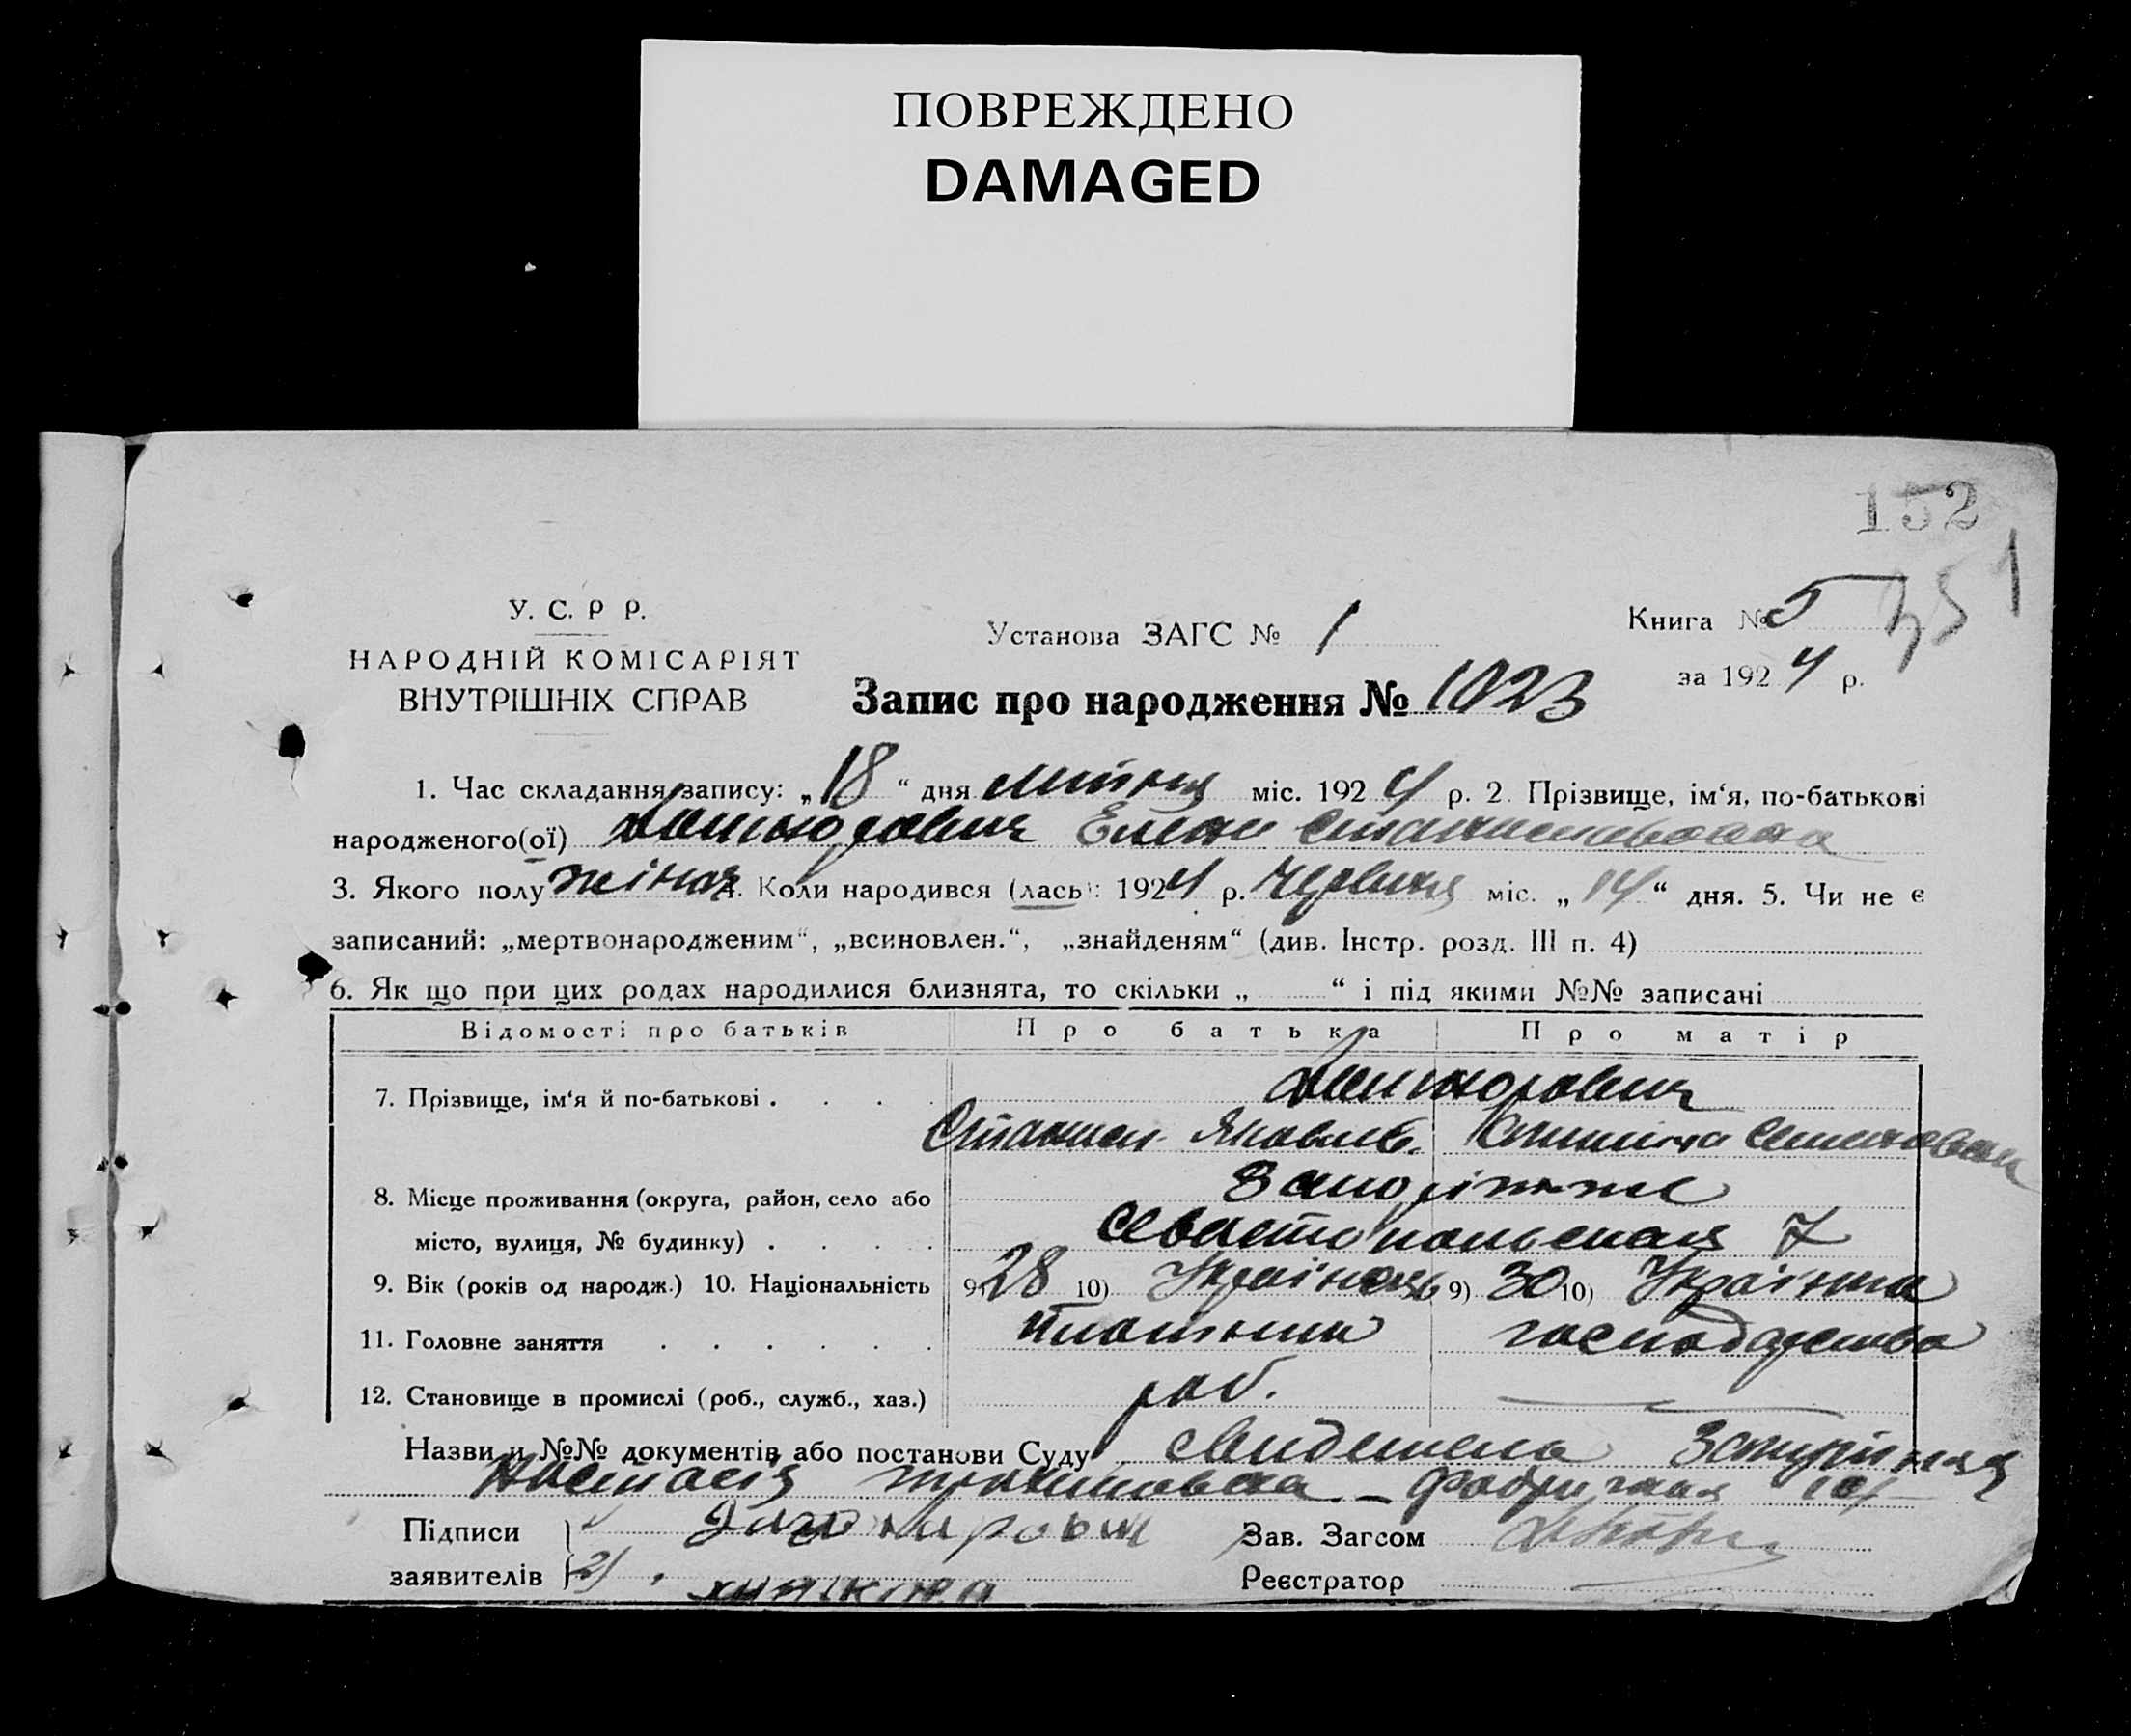 ПОВРЕЖДЕНО
DAMAGED
152
351
У. С. Р Р.
НАРОДНІЙ КОМІСАРІЯТ
ВНУТРІШНІХ СПРАВ
Установа ЗАГС № 1
Книга № 5
за 1924 р.
Запис про народження № 1023
1. Час складання запису: „18“ дня липня міс. 1924 р. 2. Прізвище, ім‘я, по-батькові
народженого(ої) Елена Станиславовна
3. Якого полу жіноч. 4. Коли народився (лась): 1924 р. червня міс. „14“ дня. 5. Чи не є
записаний: „мертвонародженим“, „всиновлен.“, „знайденям“ (див. Інстр. розд. III п. 4)
6. Як що при цих родах народилися близнята, то скільки „ “ і під якими №№ записані
Відомості про батьків Про батька Про матір
7. Прізвище, ім‘я й по-батькові
Станисл. Яковлев.
8. Місце проживання (округа, район, село або Запоріжже
місто, вулиця, № будинку) Севастопольская 7
9. Вік (років од народж.) 10. Національність 9) 28 10) Українець 9) 30 10) Українка
11. Головне заняття плотник господарство
12. Становище в промислі (роб., служб., хаз.) роб.
Назви и №№ документів або постанови Суду
Настасія
Підписи
Зав. Загсом
заявителів 2)
Реєстратор